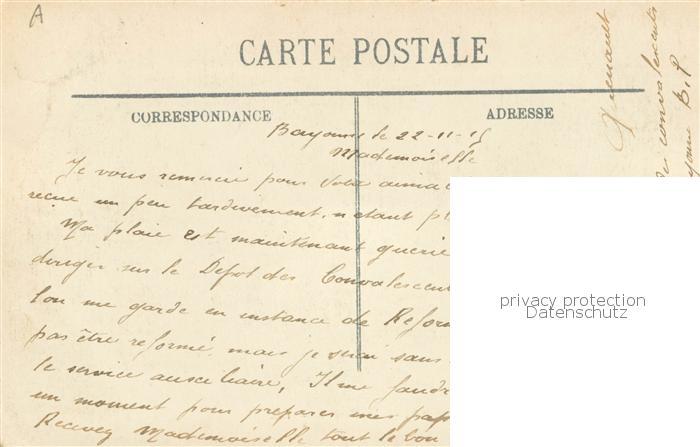 A
CARTE POSTALE
CORRESPONDANCE
ADRESSE
Bayonne le 22-11-15
Mademoiselle
Je vous remercie pour votre aimab
reçue un peu tardivement, n'etant pl
Ma plaie est maintenant guerie
diriger sur le Depot des Convalescent
l'on me garde en instance de Reform
pas être reformé, mais je serai sans
le service auxiliaire, Il me faudr
un moment pour preparer mes pap
Recevez Mademoiselle tout le bon
convalescents
B.P.
privacy protection
Datenschutz